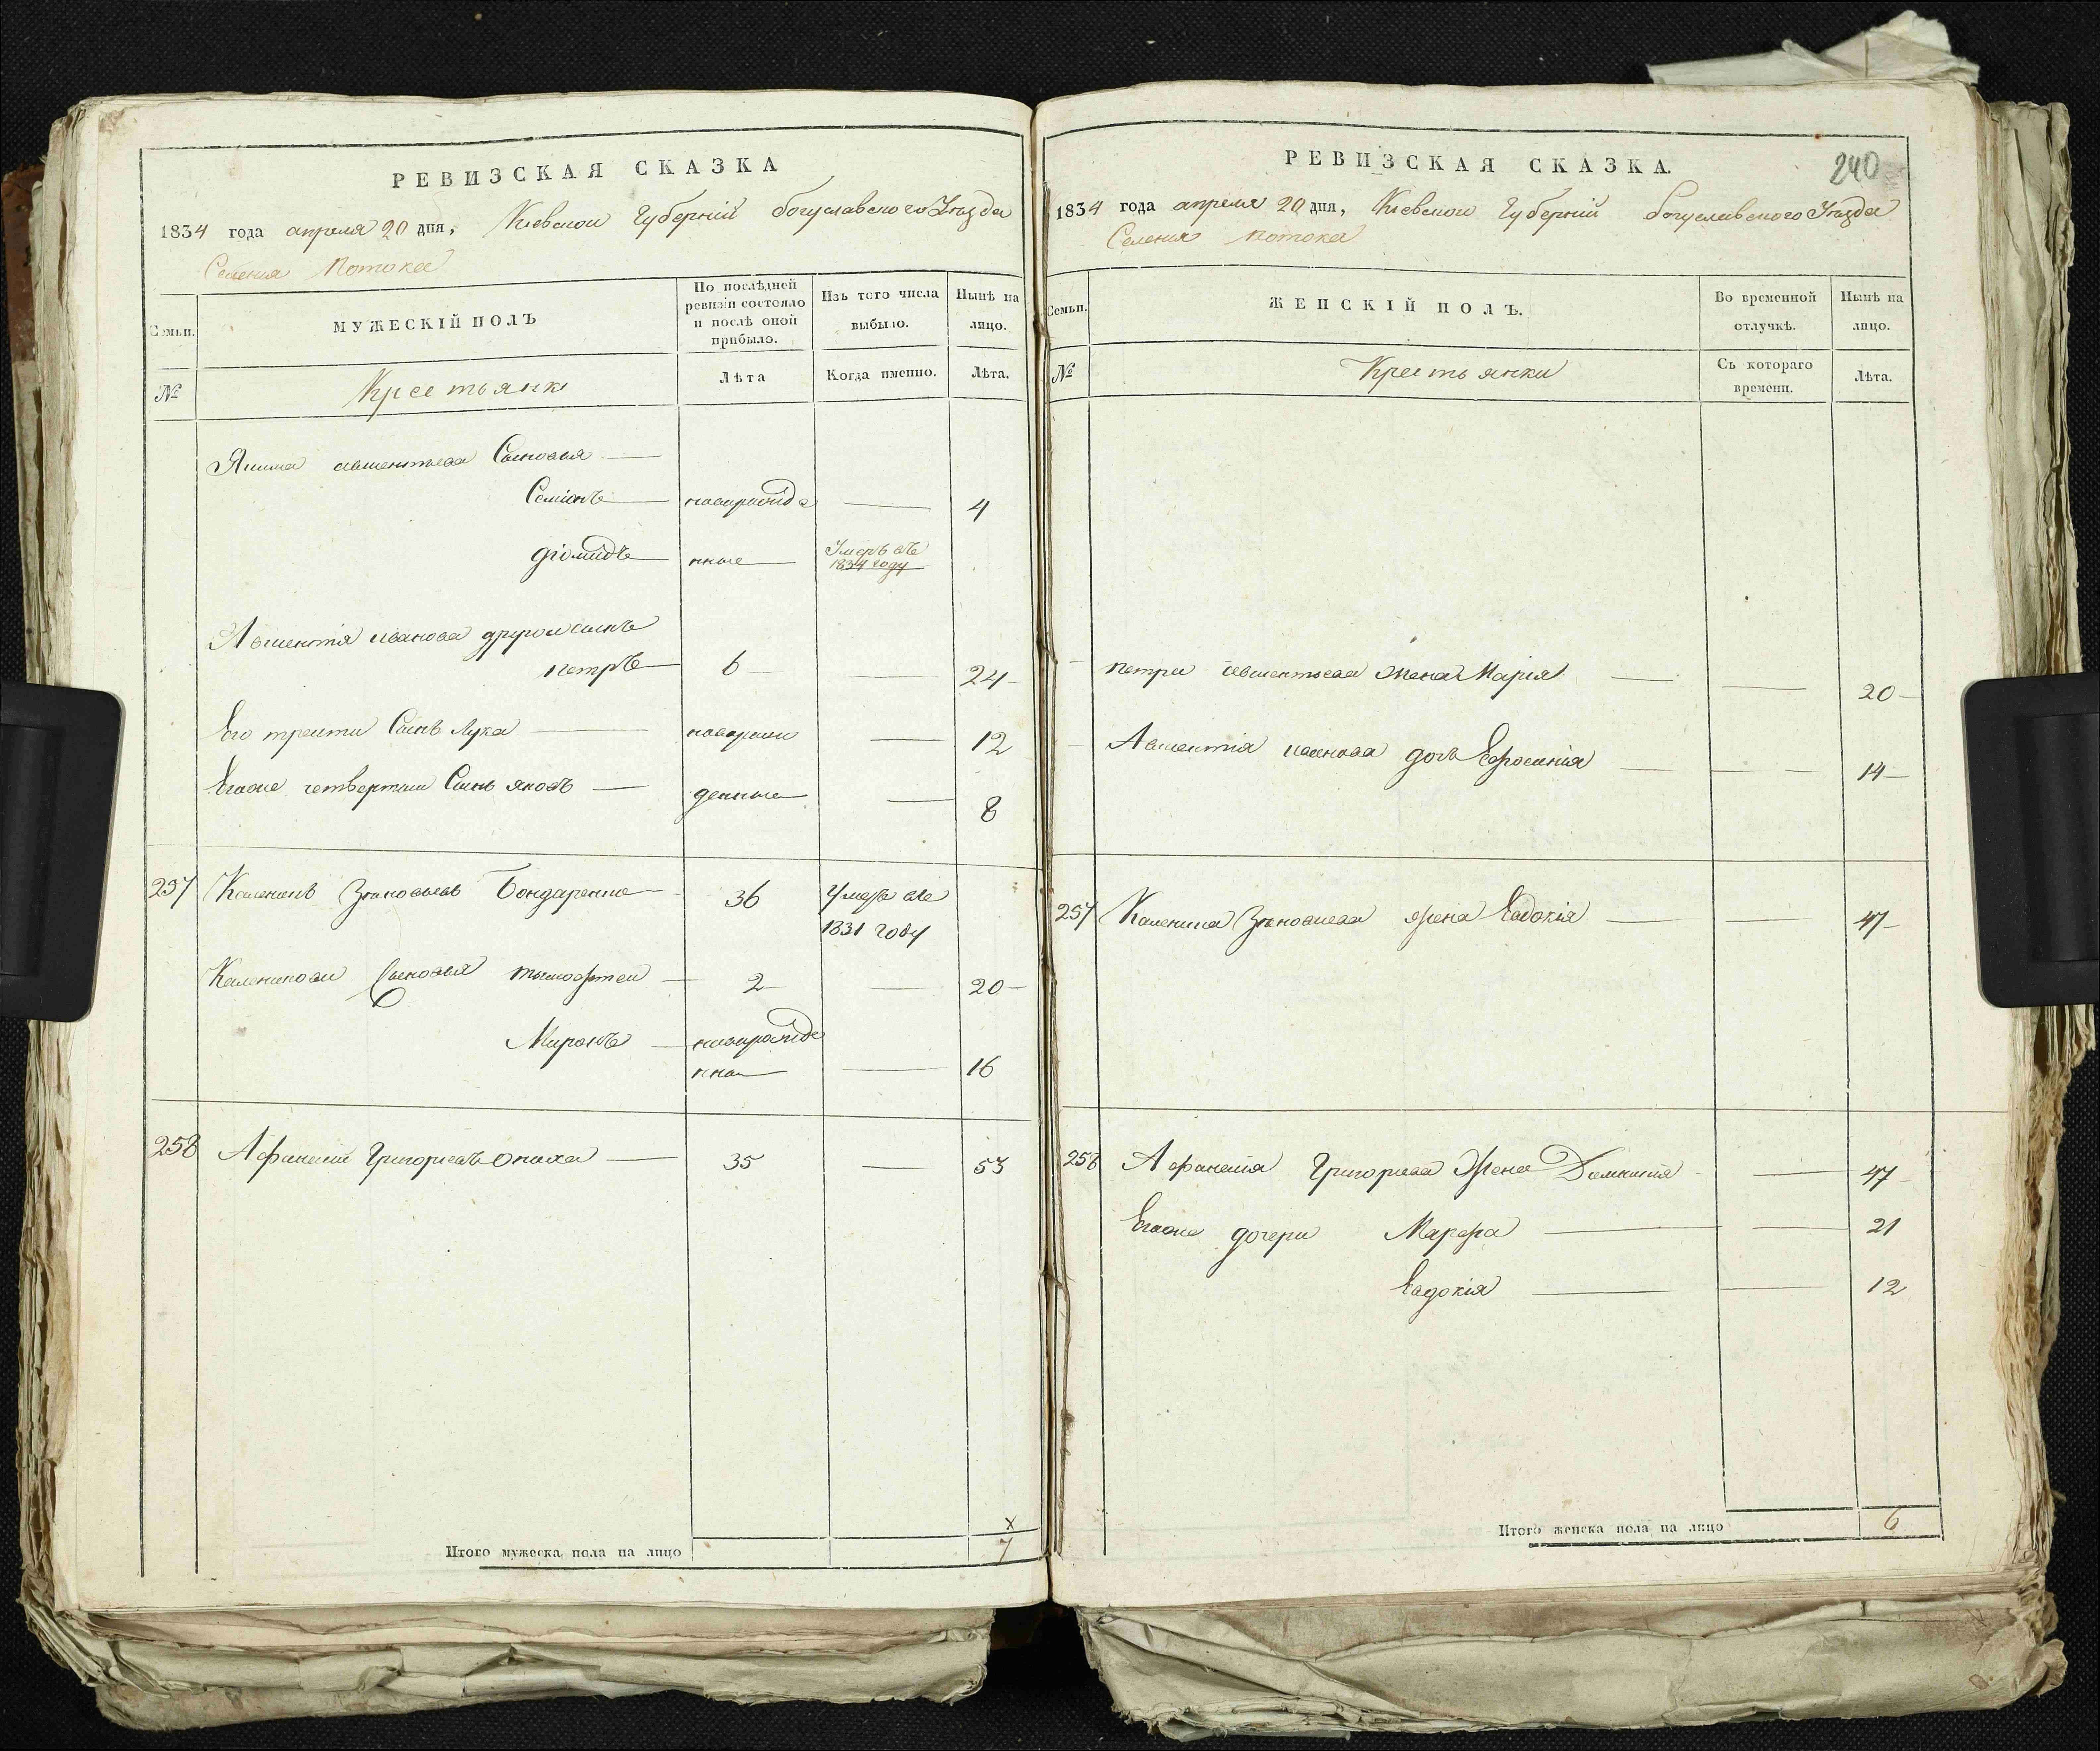 РЕВИЗСКАЯ СКАЗКА
1834 года апреля 20 дня, Киевской Губерніи Богуславского Уезда
Селения Потока
Семьи.
МУЖЕСКІЙ ПОЛЪ
По послѣдней ревизіи состояло и послѣ оной прибыло.
Изъ того числа выбыло.
Нынѣ на лицо.
№
Крестьяне
Лѣта
Когда именно.
Лѣта.
Якима авксентьева Сыновья
Семіонъ новорожде 4
діомидъ нные Умеръ въ 1834 году
Авксентія иванова другой сынъ
петръ 6 24
Его третий Сынъ Лука новорож 12
Егоже четвертый Сынъ яковъ денные 8
257 Каленикъ Зѣновьевъ Бондаренко 36 Умеръ въ
1831 году
Календикови Сыновья тымофтей 2 20
Миронъ новорожде
нной 16
258 Афанасий Григорьевъ 35 53
Итого мужеска пола на лицо 7
РЕВИЗСКАЯ СКАЗКА.
240
1834 года апреля 20 дня, Киевской Губерніи Богуславского Уезда
Селения Потока
Семьи.
ЖЕНСКІЙ ПОЛЪ.
Во временной отлучкѣ.
Нынѣ на лицо.
№
Крестьянки
Съ котораго времени.
Лѣта.
петра авксентьева жена Марія 20
Авксентія иванова дочь Ефросинія 14
257 Каленика Зѣновиева жена Евдокія 47
258 Афанасія Григориева Жена Домникия 47
Егоже дочери Марфа 21
Евдокія 12
Итого женска пола на лицо 6